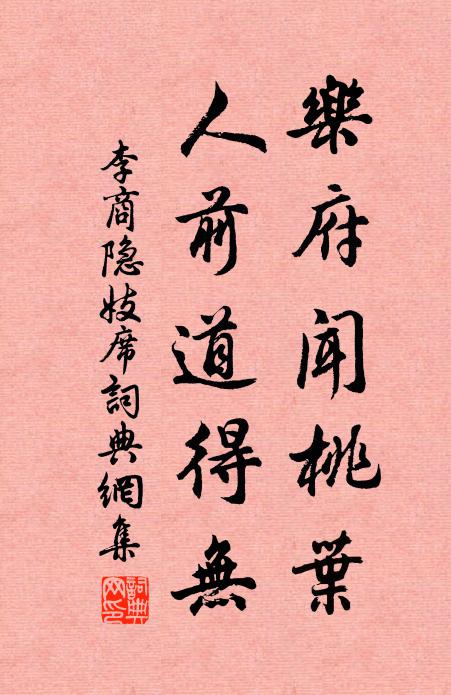 樂府聞桃葉
人前道得無
李商隐妓席詞典網集
詞典
网印